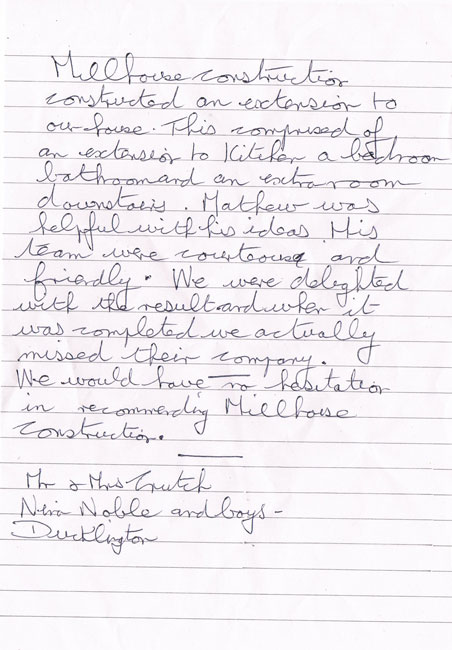 Millhouse construction
constructed an extension to
our house. This comprised of
an extension to Kitchen a bedroom
bathroom and an extra room
downstairs. Mathew was
helpful with his ideas His
team were courteous and
friendly. We were delighted
with the result and when it
was completed we actually
missed their company.
We would have no hesitation
in recommending Millhouse
Construction.
Mr & Mrs Crutch
Noble and boys -
Ducklington